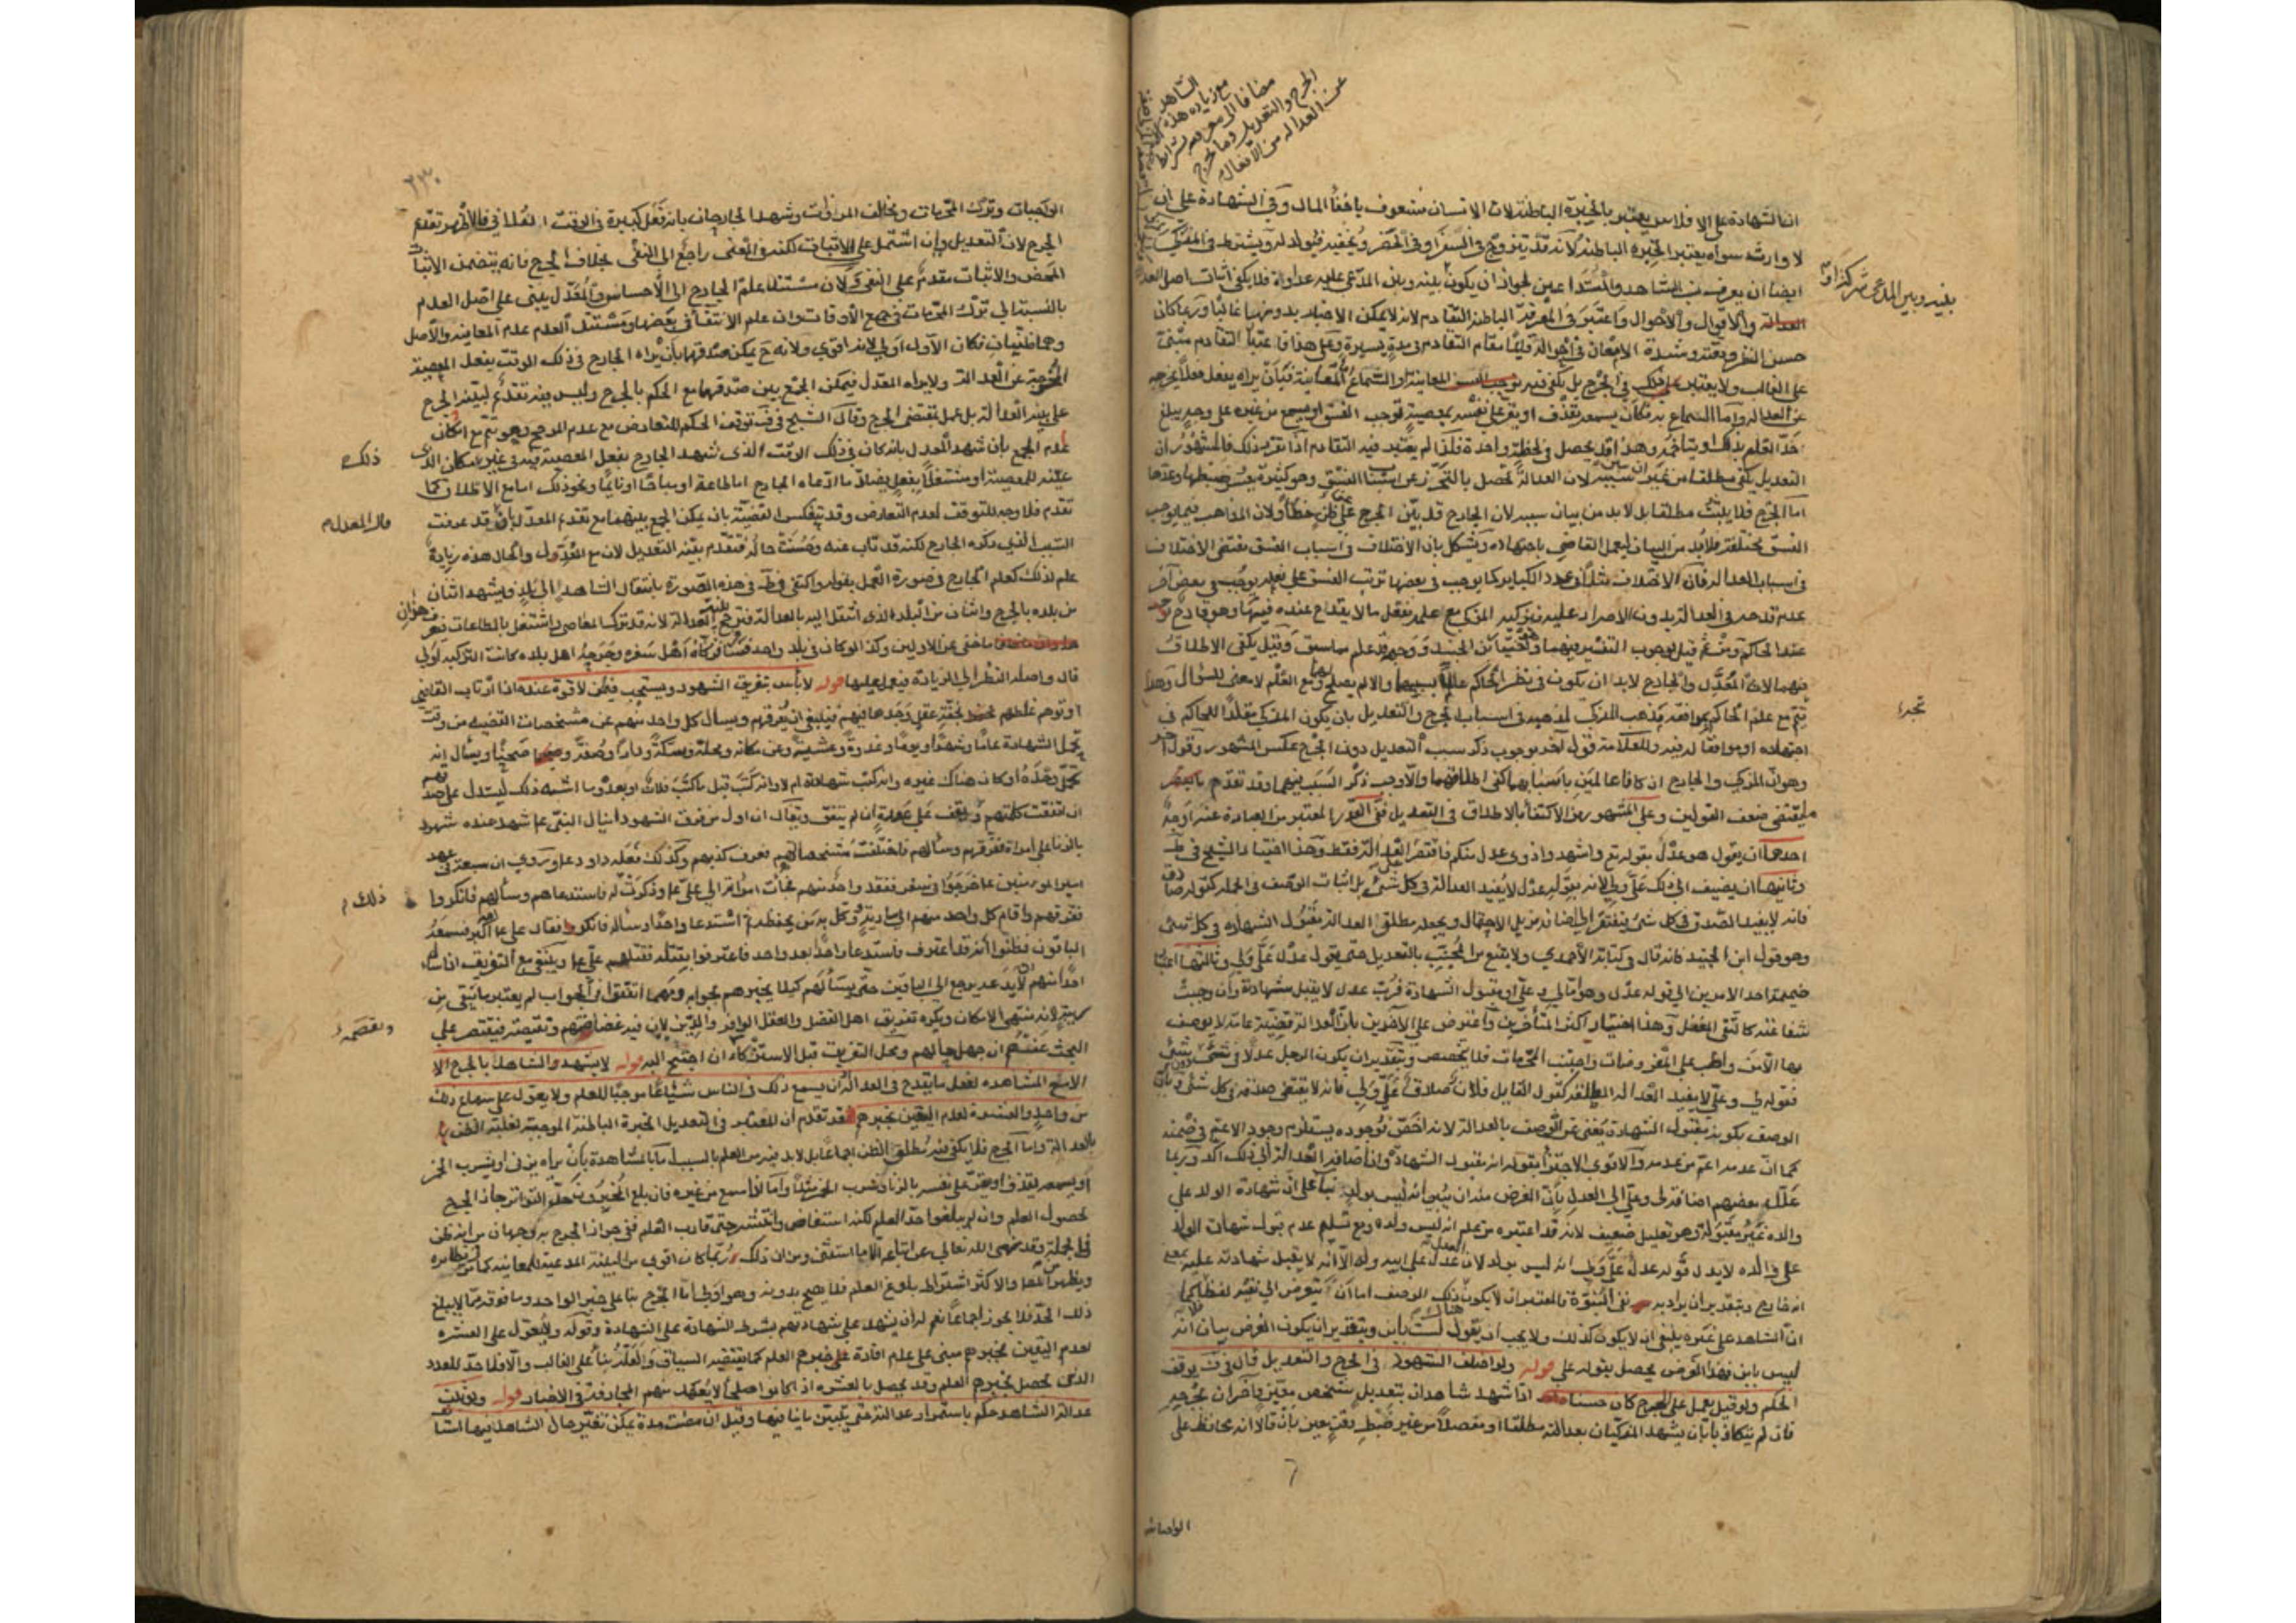 ان الشهادة على الافلاس يعتبر بالخبرة الباطنة لان الانسان شعوف باخفاء المال وفي الشهادة على ان
لا وارث سواه يعتبر الخبرة الباطنة لانه قد يتزوج في السفر او في الحضر ويخفيه فيولد له ويشترط في المزكي
ايضا ان يعرف نسب الشاهد والمتداعيين لجواز ان يكون بينه وبين المدعى عليه عداوة فلا يكفي اثبات اصل العدالة
والاقوال والاحوال واعتبر في المعرفة الباطنة التقادم لانه لا يمكن الاختبار بدونها غالبا وربما كان
حسن النظر وشدة الامعان في احواله قائما مقام التقادم في مدة يسيرة وعلى هذا فاعتبار التقادم مبني
على الغالب ولا يعتبر ذلك في الجرح بل يكفي فيه المعاينة او السماع اما المعاينة فبان يراه يفعل فعلا يخرجه
عن العدالة واما السماع به فكان يسمعه يقذف او يقر على نفسه بمعصية توجب الفسق او يسمع من غيره على وجه يبلغ
حد العلم بذلك او يتاخمه وهذا قد يحصل في لحظة واحدة فلذا لم يعتبر فيه التقادم اذا تقرر ذلك فالمشهور ان
التعديل يكفي مطلقا من غير بيان سببه لان العدالة تحصل بالتحرز عن اسباب الفسق وهي كثيرة يعسر ضبطها وعدها
اما الجرح فلا يثبت مطلقا بل لا بد من بيان سببه لان الجارح قد يبني الجرح على ظن خطأ ولان المذاهب فيما يوجب
الفسق مختلفة فلا بد من البيان ليعمل القاضي باجتهاده ويشكل بان الاختلاف في اسباب الفسق يقتضي الاختلاف
في اسباب العدالة فان الاختلاف مثلا في عدد الكباير كما يوجب في بعضها ترتب الفسق على فعله يوجب في بعض آخر
عدم قدحه في العدالة بدون الاصرار عليه فيزكيه المزكي مع علمه بفعل ما لا يقدح عنده فيها وهو قادح
عند الحاكم ومن ثم قيل بوجوب التفسير فيهما وقيل يكفي الاطلاق
فيهما لان المعدل والجارح لا بد ان يكون في نظر الحاكم عالما بسببهما والا لم يصلح لهما ومع العلم لا معنى للسؤال وهذا
يتم مع علم الحاكم بموافقة مذهب المزكي لمذهبه في اسباب الجرح والتعديل بان يكون المزكي مقلدا للحاكم في
اجتهاده او موافقا له فيه وللعلامة قول آخر بوجوب ذكر سبب التعديل دون الجرح عكس المشهور وقول آخر
وهو ان المزكي والجارح ان كانا عالمين باسبابهما كفى اطلاقهما والا وجب ذكر السبب فيهما وقد تقدم
ما يقتضي ضعف القولين وعلى المشهور من الاكتفاء بالاطلاق في التعديل ففي القدر المعتبر من العبارة عنه اوجه
احدها ان يقول هو عدل بقوله تع واشهدوا ذوي عدل منكم فاقتصر على العدالة فقط وهذا اختيار الشيخ في ط
وثانيها ان يضيف الى ذلك علي ولي لانه بقوله عدل لا يفيد العدالة في كل شيء بل اثبات الوصف في الجملة كقوله صادق
فانه لا يفيد الصدق في كل شيء فيفتقر الى اضافة تزيل الاحتمال ويجعله مطلق العدالة مقبول الشهادة في كل شيء
وهو قول ابن الجنيد فانه قال في كتابه الاحمدي ولا يقنع من المجيب بالتعديل حتى يقول عدل علي ولي وثالثها اعتبار
ضميمة احد الامرين الى قوله عدل وهو اما لي وعلي او مقبول الشهادة فرب عدل لا يقبل شهادته وان وجبت
شفاعته كالتقي المغفل وهذا اختيار اكثر المتأخرين واعترض على الآخرين بان العدالة قضية عامة لا يوصف
بها الا من واظب على المفروضات واجتنب المحرمات فلا تخصص وبتقدير ان يكون الرجل عدلا في شيء دون شيء
فقوله لي وعلي لا يفيد العدالة المطلقة كقول القايل فلان صادق علي ولي فانه لا يقتضي صدقه في كل شيء وبان
الوصف بكونه مقبول الشهادة يغني عن الوصف بالعدالة لانه اخص فوجوده يستلزم وجود الاعم في ضمنه
كما ان عدمه اعم من عدمه والاقوى الاجتزاء بقوله انه مقبول الشهادة وان اضافة العدالة الى ذلك آكد وربما
علل بعضهم اضافة لي وعلي الى العدل بان الغرض منه ان يبين انه ليس بولد بناء على ان شهادة الولد على
والده غير مقبولة وهو تعليل ضعيف لانه قد اعتبره من علم انه ليس ولده ومع تسليم عدم قبول شهادة الولد
على والده لا يدل قوله عدل علي ولي انه ليس بولد لان العدل عدل على ابيه وله الا انه لا يقبل شهادته عليه بمعنى
انه خارج وبتقدير ان يراد به نفي البنوة فالمعتبر ان لا يكون هناك ذلك الوصف اما ان يتعرض اليه لفظا فلا كما
ان الشاهد على غيره ينبغي ان لا يكون كذلك ولا يجب ان يقول لست بابن وبتقدير ان يكون الغرض بيان انه
ليس بابن فهذا الغرض يحصل بقوله علي قوله ولو اختلف الشهود في الجرح والتعديل قال في ف يوقف
الحكم ولو قيل يعمل على الجرح كان حسنا اذا شهد شاهدان بتعديل شخص معين وآخران بجرحه
فان لم يتكاذبا بان يشهد المزكيان بعدالته مطلقا او مفصلا من غير ضبط وقت معين بان قالا انه محافظ على
الواجبات
بينه وبين المدعي شركة او
الشاهد
مع زيادة هذه
مضافا الى معرفة شرايط
الجرح والتعديل وما يخرج
عن العدالة من الافعال
٢٣٠
الواجبات وترك المحرمات ويخالف المروات وشهد الجارحان بانه فعل كبيرة في الوقت الفلاني فالاظهر تقدم
الجرح لان التعديل وان اشتمل على الاثبات لكنه في المعنى راجع الى النفي بخلاف الجرح فانه يتضمن الاثبات
المحض والاثبات مقدم على النفي ولان مستند علم الجارح الى الاحساس والمعدل يبني على اصل العدم
بالنسبة الى ترك المحرمات في جميع الاوقات وان علم الانتفاء في بعضها ومستند العدم عدم المعاينة والاصل
وهما ظنيان فكان الاول اولى لانه اقوى ولانه ح يمكن صدقهما بان يراه الجارح في ذلك الوقت يفعل المعصية
المخرجة عن العدالة ولا يراه المعدل فيمكن الجمع بين صدقهما مع الحكم بالجرح وليس فيه تقديم لبينة الجرح
على بينة العدالة بل عمل بمقتضى الجرح وقال الشيخ في ف توقف الحكم للتعارض مع عدم المرجح وهو يتم مع امكان
عدم الجمع بان شهد المعدل بانه كان في ذلك الوقت الذي شهد الجارح بفعل المعصية فيه في غير المكان الذي
عينه للمعصية او مشتغلا بفعل يضاد ما ادعاه الجارح اما طاعة او مباحا او نايما ونحو ذلك اما مع الاطلاق كما
تقدم فلا وجه للتوقف لعدم التعارض وقد تنعكس القضية بان يمكن الجمع بينهما مع تقدم المعدل بان قد عرفت
السبب الذي ذكره الجارح لكنه قد تاب عنه وحسنت حاله فتقدم بينة التعديل لان مع المعدل والحال هذه زيادة
علم لذلك كعلم الجارح في صورة العمل بقوله واكتفى في ط في هذه الصورة بانتقال الشاهد الى بلد فيشهد اثنان
من بلده بالجرح واثنان من البلد الذي انتقل اليه بالعدالة فترجح بينة العدالة لانه قد ترك المعاصي واشتغل بالطاعات فعرف هذان
ما خفي عن الاولين وكذا لو كان في بلد واحد فسافر فزكاه اهل سفره وجرحه اهل بلده كانت التزكية اولى
قال واصله النظر الى الزيادة فيعمل عليها قوله لا بأس بتفريق الشهود ويستحب فيمن لا قوة عنده اذا ارتاب القاضي
او توهم غلطهم لخفة عقل وجدها فيهم فينبغي ان يفرقهم ويسأل كل واحد منهم عن مشخصات القضية من وقت
تحمل الشهادة عاما وشهرا ويوما وغدوة وعشية وعن مكانه ومحلة وسكة ودارا وصفة وصحنا ويسأل انه
تحمل وحده او كان هناك غيره وانه كتب شهادته ام لا وانه كتب قبل ما كتب فلان او بعده وما اشبه ذلك ليستدل على صدقهم
ان اتفقت كلمتهم ويقف على عورة ان لم يتفق ويقال ان اول من فرق الشهود دانيال النبي ع شهد عنده شهود
بالزنا على امرأة ففرقهم وسألهم فاختلفت مشخصاتهم فعرف كذبهم وكذلك فعله داود ع وروي ان سبعة في عهد
امير المؤمنين ع خرجوا في سفر ففقد واحد منهم فجاءت امرأته الى علي ع وذكرت له فاستدعاهم وسألهم فانكروا
ففرقهم واقام كل واحد منهم الى سارية ووكل به من يحفظه ثم استدعا واحدا وسأله فانكر فقال علي ع الله اكبر فسمعه
الباقون فظنوا انه قد اعترف فاستدعا واحدا بعد واحد فاعترفوا بقتله فقتلهم علي ع وينبغي مع التفريق اذا سأل
احدا منهم ان لا يدعه يرجع الى الباقين حتى يسألهم كيلا يخبرهم بجوابه ومهما اتفقوا في الجواب لم يعتبر ما تبقى من
ريبة لانه منتهى الامكان ويكره تفريق اهل الفضل والعقل الوافر والدين لان فيه غضاضتهم وتنقيصهم فيقتصر على
البحث عنهم ان جهل حالهم ومحل التفريق قبل الاستزكاء ان احتيج اليه قوله لا يشهد الشاهد بالجرح الا
الا مع المشاهدة لفعل ما يقدح في العدالة او ان يسمع ذلك في الناس شياعا موجبا للعلم ولا يعول على سماع ذلك
من واحد والعشرة لعدم اليقين بخبرهم فقد تقدم ان المعتبر في التعديل الخبرة الباطنة الموجبة لغلبة الظن
بالعدالة واما الجرح فلا يكفي فيه مطلق الظن اجماعا بل لا بد فيه من العلم بالسبب اما بالمشاهدة بان يراه يزني او يشرب الخمر
او يسمعه يقذف او يقر على نفسه بالزنا وشرب الخمر مثلا واما اذا سمع من غيره فان بلغ المخبرون حد التواتر جاز الجرح
لحصول العلم وان لم يبلغوا حد العلم لكنه استفاض وانتشر حتى قارب العلم ففي جواز الجرح به وجهان من انه ظن
في الجملة وقد نهى الله تعالى عن اتباعه الا ما استثني ومن ان ذلك ربما كان اقوى من البينة المدعية للمعاينة كما مر في نظايره
ويظهر من المص والاكثر اشتراط بلوغ العلم فلا يصح بدونه وهو اولى اما الجرح بناء على خبر الواحد وما فوقه مما لا يبلغ
ذلك الحد فلا يجوز اجماعا نعم له ان يشهد على شهادتهم بشرط الشهادة على الشهادة وقوله ولا يعول على العشرة
لعدم اليقين بخبرهم مبني على عدم افادة خبرهم العلم كما يقتضيه السياق والعلة بناء على الغالب والا فلا حد للعدد
الذي يحصل بخبرهم العلم وقد يحصل بالعشرة اذا كانوا صلحاء لا يعهد منهم المجازفة في الاخبار قوله ولو ثبت
عدالة الشاهد حكم باستمرار عدالته حتى يتبين ما ينافيها وقيل ان مضت مدة يمكن تغير حال الشاهد فيها استأنف
ذلك
قال المعدل م
ذلك م